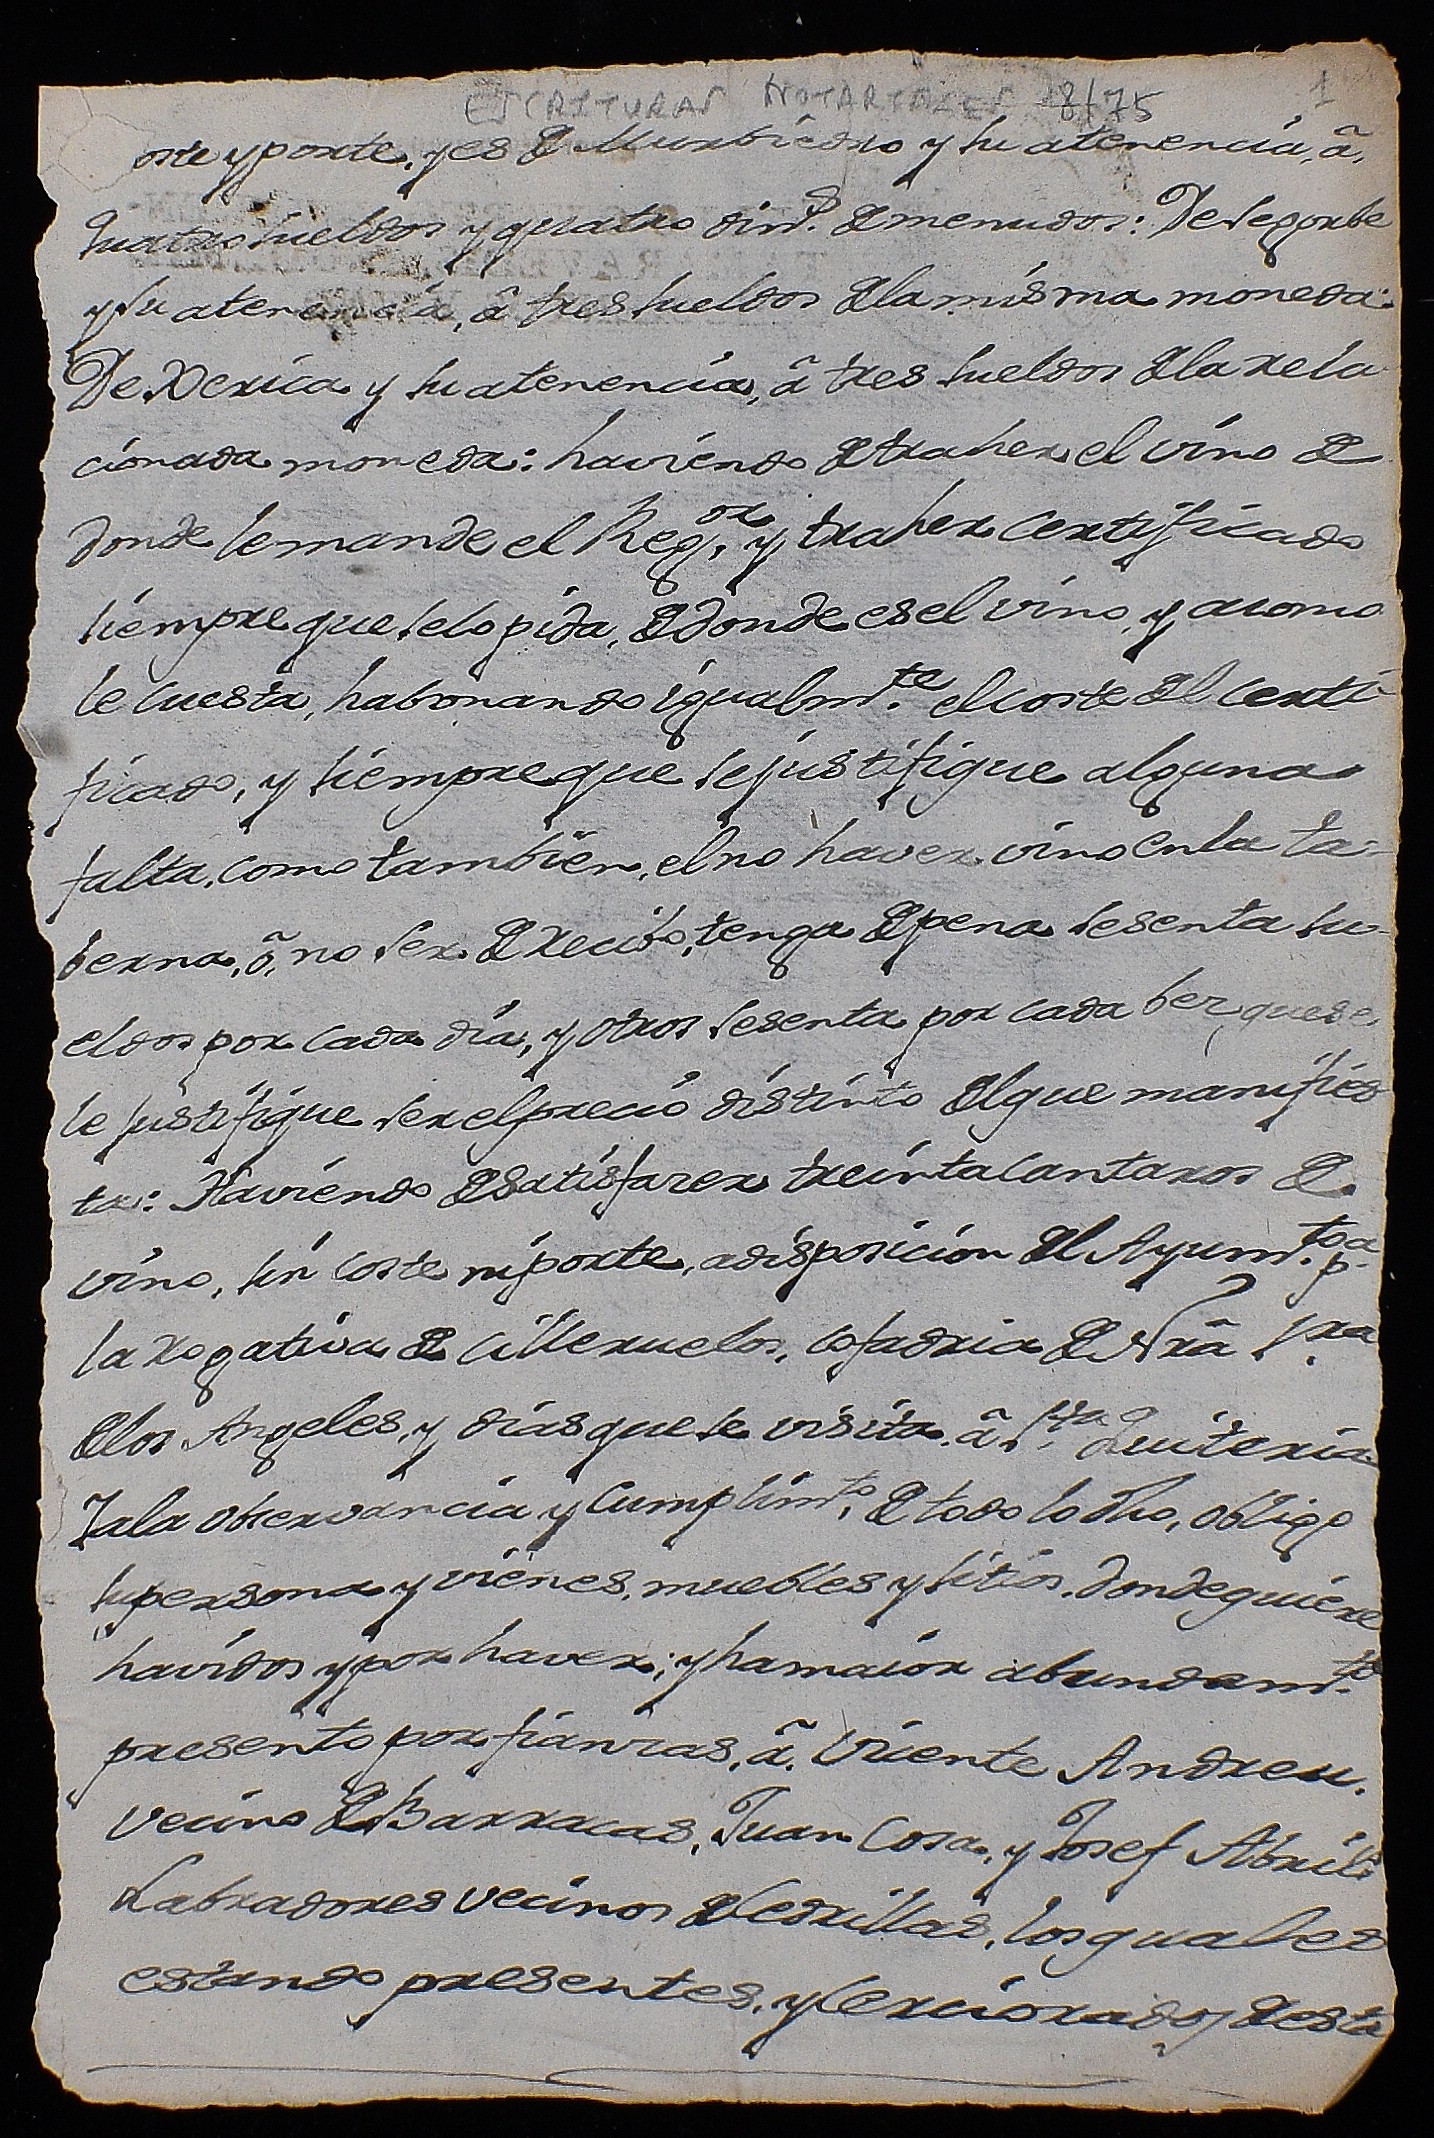 ESCRITURAS NOTARIALES 18/75 1
oste y porte, y es de Murbiedro y su atenencia, â,
quatro sueldos y quatro din.s de menudos: De Segorbe
y su atenencia, â tres sueldos de la misma moneda:
De Xerica y su atenencia, â tres sueldos de la rela
cionada moneda: haviendo de traher el vino de
donde le mande el Reg.or y traher certificado
siempre que se lo pida, de donde es el vino, y acomo
le cuesta, habonando igualm.te el coste del certi
ficado, y siempre que se justifique alguna
falta, como tambien, el no haver vino en la ta-
berna, ô, no ser de recibo, tenga de pena sesenta su-
eldos por cada dia, y otros sesenta por cada bez que se
le justifique ser el precio distinto del que manifies
ta: Haviendo de satisfazer treinta cantaros de
vino, sin coste ni porte, a disposicion del Ayum.to p.a
la rogativa de Cilleruelos, Cofadria de Nrã S.ra
de los Angeles, y dias que se visita â S.ta Quiteria
Y a la observancia y cumplim.to de todo lo dho, obligo
su persona y viênes, muebles y sitios, donde quiere
havidos y por haver; y ha maior abundam.to
presento por fianzas, â Vicente Andreu,
vecino de Barracas, Juan Cosa, y Josef Abril
Labradores vecinos de Cedrillas, los quales
estando presentes, y cerciorados de esta